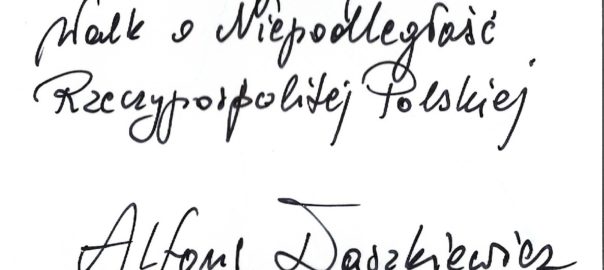 Walk o Niepodległość
Rzeczypospolitej Polskiej
Alfons Daszkiewicz